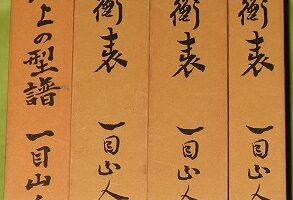 衡表 一目山人
衡表 一目山人
衡表 一目山人
上の型譜 一目山人